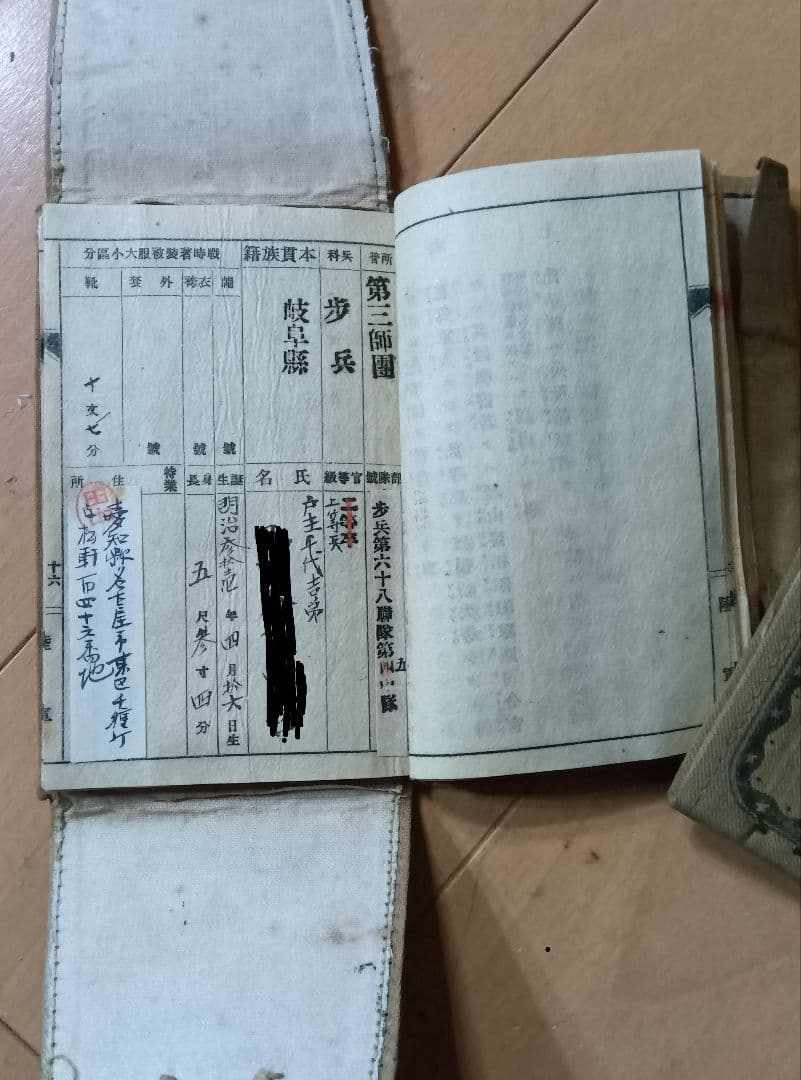 所管
第三師團
部隊號
步兵第六十八聯隊第五隊
兵科
步兵
官等級
上等兵
本貫族籍
岐阜縣
氏名
戸主年代吉弟
戰時著裝被服大小區分
帽
號
衣袴
號
外套
號
靴
十文七分
誕生
明治參拾壱年四月拾六日生
身長
五尺參寸四分
特業
住所
愛知縣名古屋市東區千種町
百四十六番地
十六
陸軍
陸軍